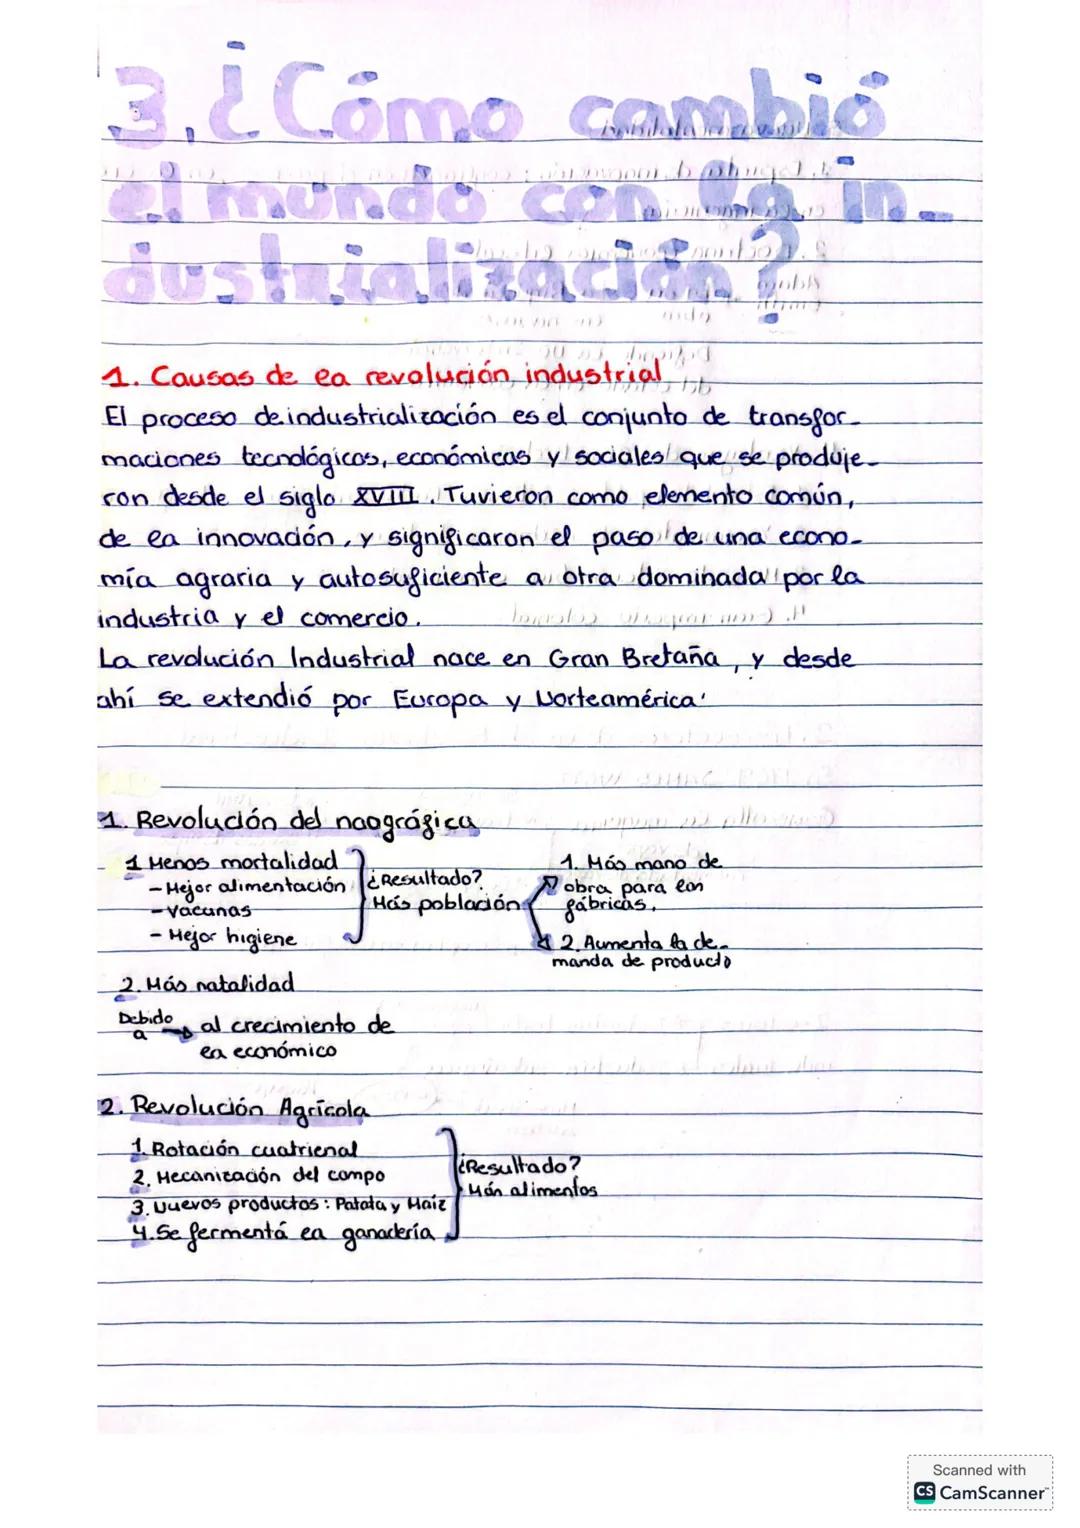 3. ¿Cómo cambió
el mundo con la in-
dustrialización?
1. Causas de ea revolución industrial
El proceso de industrialización es el conjunto de transfor-
maciones tecnológicas, económicas y sociales que se produje-
ron desde el siglo XVIII. Tuvieron como elemento común,
de ea innovación, y significaron el paso de una econo-
mía agraria y autosuficiente a otra dominada por la
industria y el comercio.
La revolución Industrial nace en Gran Bretaña, y desde
ahí se extendió por Europa y Norteamérica.
1. Revolución del naográfica
1 Menos mortalidad
- Mejor alimentación
- Vacunas
- Mejor higiene
¿Resultado?
Más población
1. Más mano de
obra para ean
fábricas.
2. Aumenta la de-
manda de producto
2. Más natalidad
Debido
a
al crecimiento de
ea económico
2. Revolución Agrícola
1. Rotación cuatrienal
2. Mecanización del campo
3. Nuevos productos: Patata y Maíz
4. Se fermentá ea ganadería
¿Resultado?
Mán alimentos
Scanned with
CS CamScanner